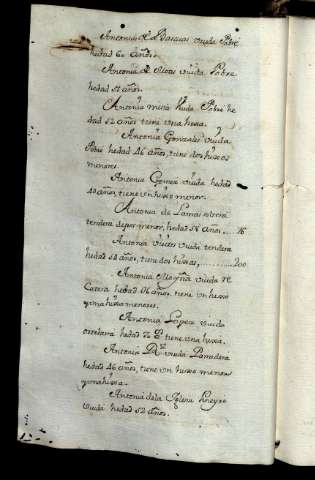 Antonia de Varcias viuda Pobre
hedad 60 años.
Antonia de viuda Pobre
hedad 51 años.
Antonia viuda Pobre he
dad 52 años, tiene una huxa.
Antonia Gonzales viuda
Pobre hedad 46 años, tiene dos huxos
menores.
Antonia Gomez viuda hedad
40 años, tiene un huxo menor.
Antonia de Lamas
tendera de por menor, hedad 58 años .... 76
Antonia viuda tendera
hedad 54 años, tiene dos huxas, .......... 200
Antonia viuda de
hedad 36 años, tiene un huxo
y una huxa menores.
Antonia Lopez viuda
hedad 70 tiene una huxa.
Antonia Rz viuda Panadera
hedad 46 años, tiene un huxo menor
y una huxa.
Antonia dela Yglesia
viuda hedad 52 años.